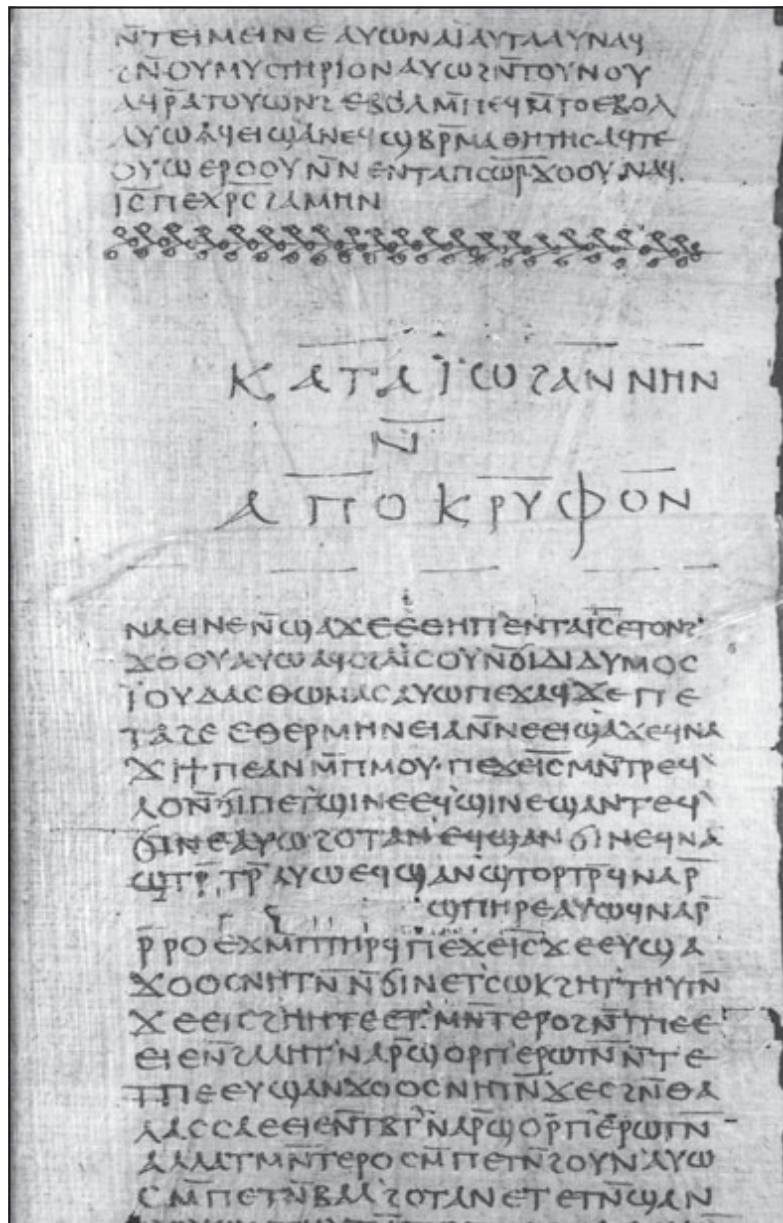 ⲛ̅ⲧⲉⲓⲙⲉⲓⲛⲉⲁⲩⲱⲛⲁⲓⲁⲩⲧⲁⲁⲩⲛⲁϥ
ϩⲛ̅ⲟⲩⲙⲩⲥⲧⲏⲣⲓⲟⲛⲁⲩⲱϩⲛ̅ⲧⲟⲩⲛⲟⲩ
ⲁϥⲣ̅ⲁⲧⲟⲩⲱⲛϩⲉⲃⲟⲗⲙ̅ⲡⲉϥⲙ̅ⲧⲟⲉⲃⲟⲗ
ⲁⲩⲱⲁϥⲉⲓϣⲁⲛⲉϥϣⲃⲣ̅ⲙⲁⲑⲏⲧⲏⲥⲁϥⲧⲉ
ⲟⲩⲱⲉⲣⲟⲟⲩⲛ̅ⲛⲉⲛⲧⲁⲡⲥⲱ̅ⲣ̅ϫⲟⲟⲩⲛⲁϥ·
ⲓ̅ⲥ̅ⲡⲉⲭⲣ̅ⲥ̅ϩⲁⲙⲏⲛ
ⲕⲁⲧⲁⲓ̈ⲱϩⲁⲛⲛⲏⲛ
ⲛ̅
ⲁⲡⲟⲕⲣⲩⲫⲟⲛ
ⲛⲁⲉⲓⲛⲉⲛ̅ϣⲁϫⲉⲉⲑⲏⲡʼⲉⲛⲧⲁⲓ̅ⲥ̅ⲉⲧⲟⲛϩʼ
ϫⲟⲟⲩⲁⲩⲱⲁϥⲥϩⲁⲓⲥⲟⲩⲛ̅ϭⲓⲇⲓⲇⲩⲙⲟⲥ
ⲓ̈ⲟⲩⲇⲁⲥⲑⲱⲙⲁⲥⲁⲩⲱⲡⲉϫⲁϥϫⲉⲡⲉ
ⲧⲁϩⲉⲉⲑⲉⲣⲙⲏⲛⲉⲓⲁⲛ̅ⲛⲉⲉⲓϣⲁϫⲉϥⲛⲁ
ϫⲓϯⲡⲉⲁⲛⲙ̅ⲡⲙⲟⲩ·ⲡⲉϫⲉⲓ̅ⲥ̅ⲙⲛ̅ⲧⲣⲉϥʼ
ⲗⲟⲛ̅ϭⲓⲡⲉⲧʼϣⲓⲛⲉⲉϥʼϣⲓⲛⲉϣⲁⲛⲧⲉϥʼ
ϭⲓⲛⲉⲁⲩⲱϩⲟⲧⲁⲛʼⲉϥϣⲁⲛϭⲓⲛⲉϥⲛⲁ
ϣⲧⲣ̅ⲧⲣ̅ⲁⲩⲱⲉϥϣⲁⲛʼϣⲧⲟⲣⲧⲣ̅ϥⲛⲁⲣ̅
ϣⲡⲏⲣⲉⲁⲩⲱϥⲛⲁⲣ̅
ⲣ̅ⲣⲟⲉϫⲙ̅ⲡⲧⲏⲣϥⲡⲉϫⲉⲓ̅ⲥ̅ϫⲉⲉⲩϣⲁ
ϫⲟⲟⲥⲛⲏⲧⲛ̅ⲛ̅ϭⲓⲛⲉⲧʼⲥⲱⲕϩⲏⲧʼⲧⲏⲩⲧⲛ̅
ϫⲉⲉⲓⲥϩⲏⲏⲧⲉⲉⲧʼⲙⲛ̅ⲧⲉⲣⲟϩⲛ̅ⲧⲡⲉⲉ
ⲉⲓⲉⲛ̅ϩⲁⲗⲏⲧʼⲛⲁⲣ̅ϣⲟⲣⲡʼⲉⲣⲱⲧⲛ̅ⲛ̅ⲧⲉ
ⲧⲡⲉⲉⲩϣⲁⲛϫⲟⲟⲥⲛⲏⲧⲛ̅ϫⲉⲥϩⲛ̅ⲑⲁ
ⲗⲁⲥⲥⲁⲉⲉⲓⲉⲛ̅ⲧⲃⲧʼⲛⲁⲣ̅ϣⲟⲣⲡʼⲉⲣⲱⲧⲛ̅
ⲁⲗⲗⲁⲧⲙⲛ̅ⲧⲉⲣⲟⲥⲙ̅ⲡⲉⲧⲛ̅ϩⲟⲩⲛʼⲁⲩⲱ
ⲥⲙ̅ⲡⲉⲧⲛ̅ⲃⲁⲗʼϩⲟⲧⲁⲛⲉⲧⲉⲧⲛ̅ϣⲁⲛ